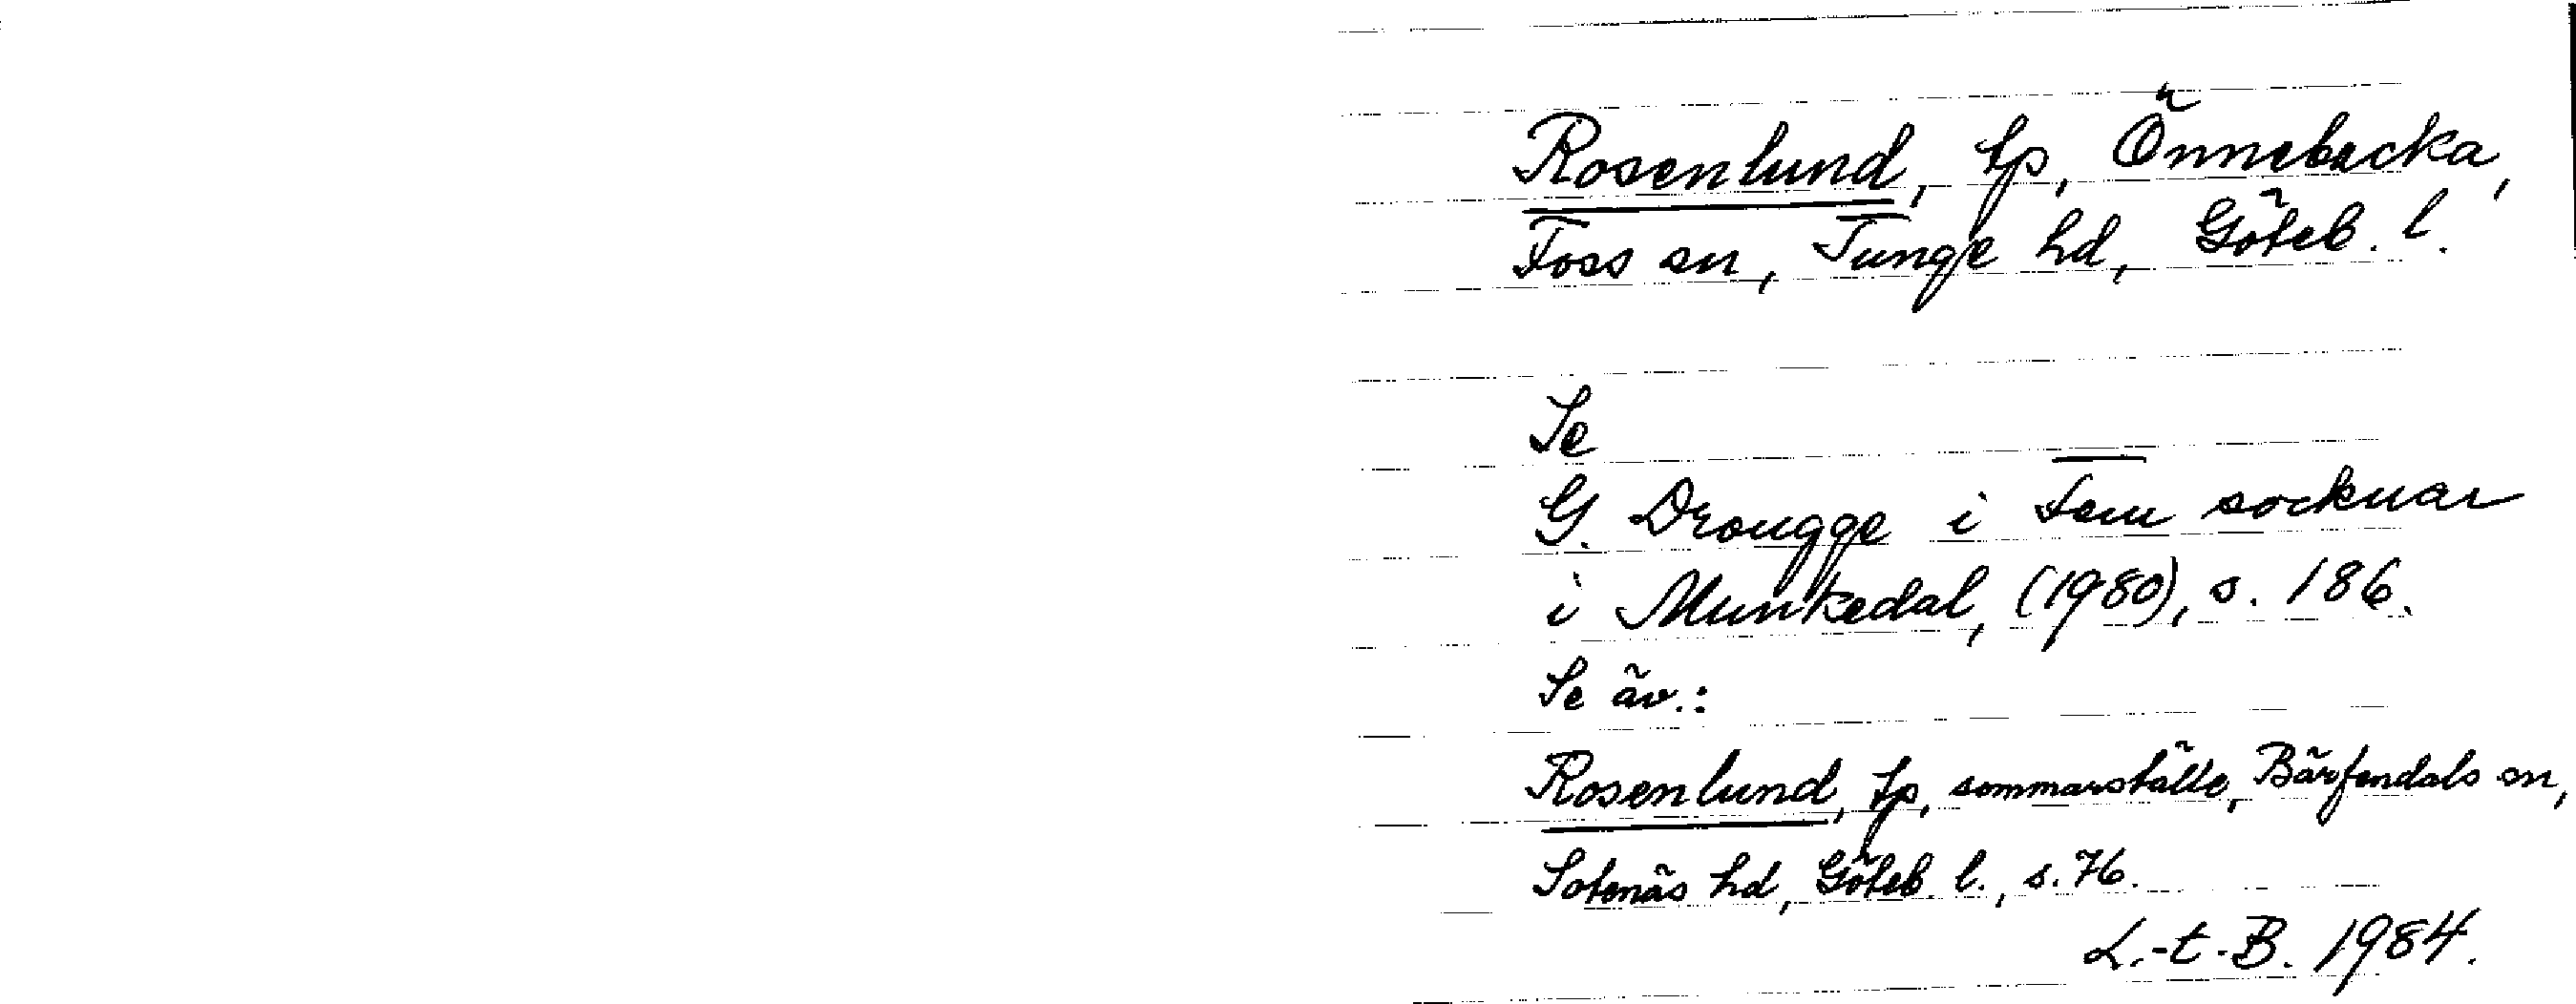 Rosenlund, tp, Önnebacka,
Foss sn, Tunge hd, Göteb. l.
Se
G. Drougge i Fem socknar
i Munkedal, (1980), s. 186.
Se äv.:
Rosenlund, tp, sommarställe, Bärfendals sn,
Sotenäs hd, Göteb. l., s. 76.
L.-t.-B. 1984.